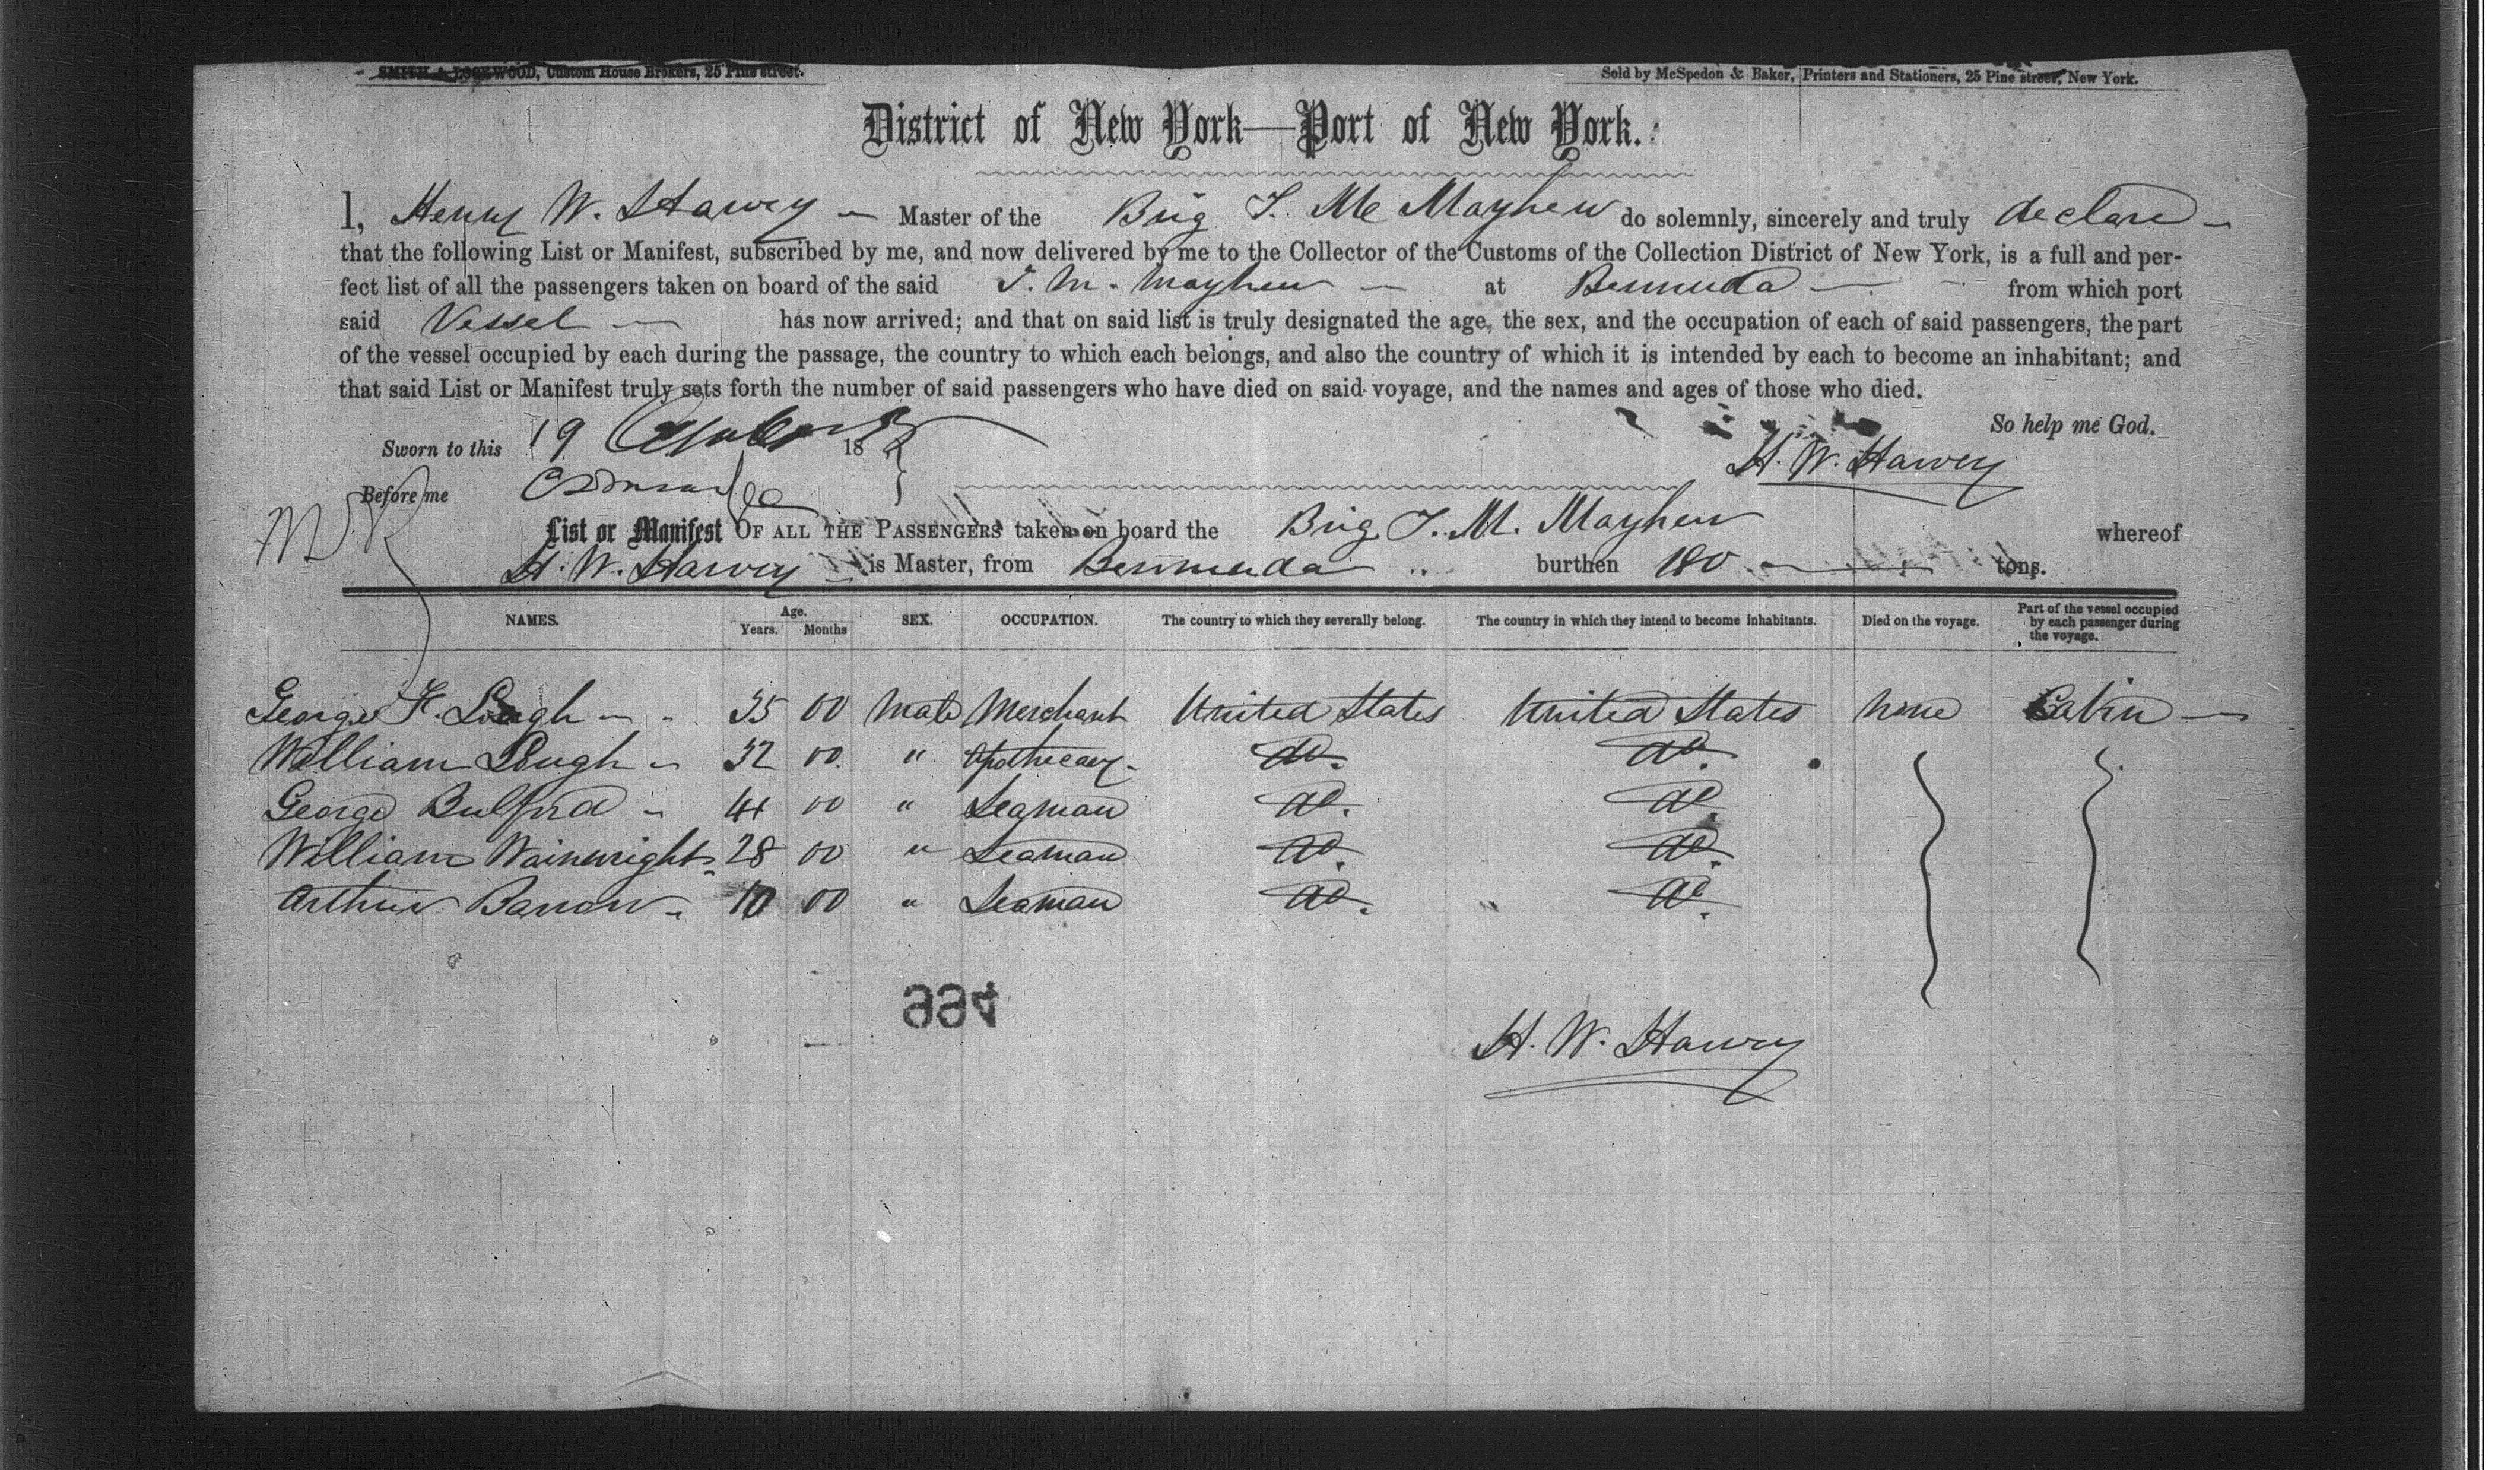 SMITH & LOCKWOOD, Custom House Brokers, 25 Pine street.
Sold by McSpedon & Baker, Printers and Stationers, 25 Pine street, New York.
District of New York—Port of New York.
I, Henry W. Harvey - Master of the Brig T. M. Mayhew do solemnly, sincerely and truly declare -
that the following List or Manifest, subscribed by me, and now delivered by me to the Collector of the Customs of the Collection District of New York, is a full and per-
fect list of all the passengers taken on board of the said T. M. Mayhew - at Bermuda - from which port
said Vessel - has now arrived; and that on said list is truly designated the age, the sex, and the occupation of each of said passengers, the part
of the vessel occupied by each during the passage, the country to which each belongs, and also the country of which it is intended by each to become an inhabitant; and
that said List or Manifest truly sets forth the number of said passengers who have died on said voyage, and the names and ages of those who died.
So help me God.
Sworn to this 19 18
H. W. Harvey
Before me
List or Manifest OF ALL THE PASSENGERS taken on board the Brig T. M. Mayhew whereof
H. W. Harvey - is Master, from Bermuda burthen 180 - tons.
NAMES. Age. Years. Months SEX. OCCUPATION. The country to which they severally belong. The country in which they intend to become inhabitants. Died on the voyage. Part of the vessel occupied by each passenger during the voyage.
George F. Lough - 35 00 Male Merchant United States United States None Cabin -
William Lough - 32 00 " Apothecary - do. do.
George Bulford - 44 00 " Seaman do. do.
William Wainwright - 28 00 " Seaman do. do.
Arthur Barrow - 10 00 " Seaman do. do.
994
H. W. Harvey